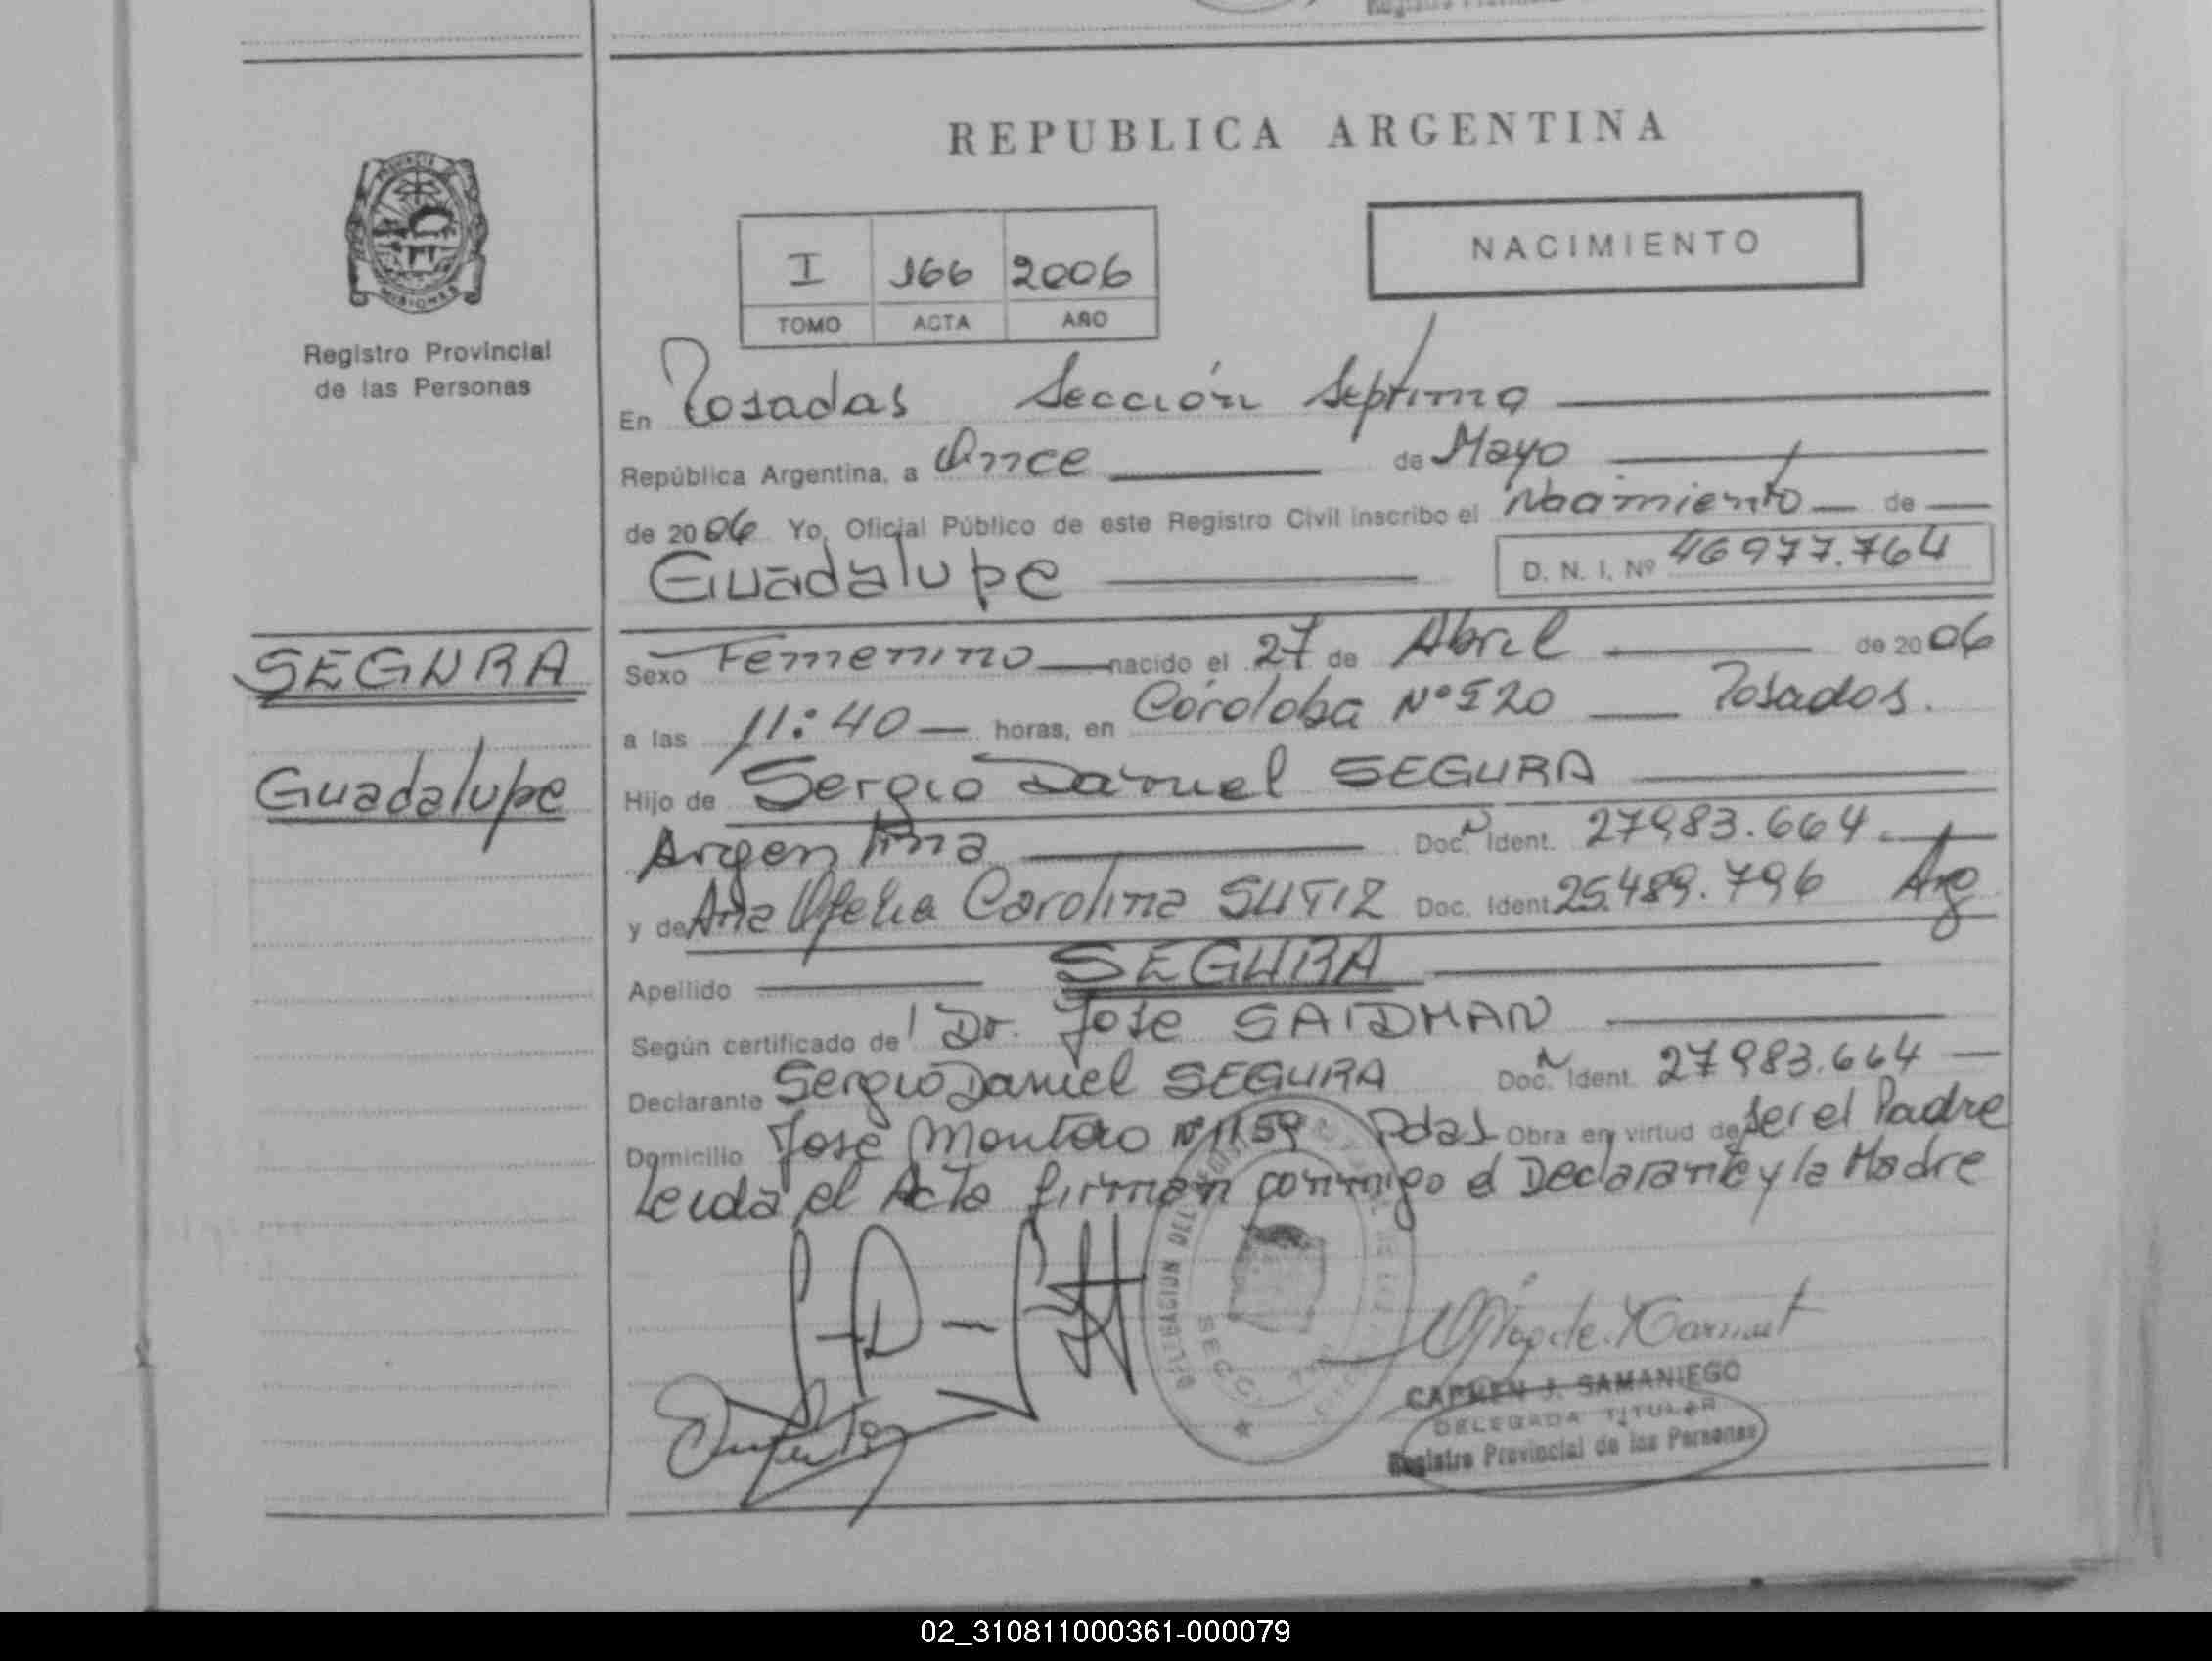 REPUBLICA ARGENTINA
PROVINCIA DE
MISIONES
Registro Provincial
de las Personas
I 166 2006
TOMO ACTA AÑO
NACIMIENTO
En Posadas Sección Septima
República Argentina, a Once de Mayo
de 2006 Yo, Oficial Público de este Registro Civil inscribo el Nacimiento de
Guadalupe D. N. I. Nº 46977.764
SEGURA
Guadalupe
Sexo Femenino nacido el 27 de Abril de 2006
a las 11:40 horas, en Córdoba Nº 520 Posadas.
Hijo de Sergio Daniel SEGURA
Argentina Doc. N Ident. 27983.664.
y de Ana Ofelia Carolina SUTIZ Doc. Ident. 25.489.796 Arg
Apellido SEGURA
Según certificado de Dr. Jose SAIDMAN
Declarante Sergio Daniel SEGURA Doc. N Ident. 27983.664
Domicilio José Nº 1159 Pdas Obra en virtud de ser el Padre
Leida el Acta firman conmigo el Declarante y la Madre
DELEGACION DEL
CARMEN J. SAMANIEGO
DELEGADA TITULAR
Registro Provincial de las Personas
02_310811000361-000079